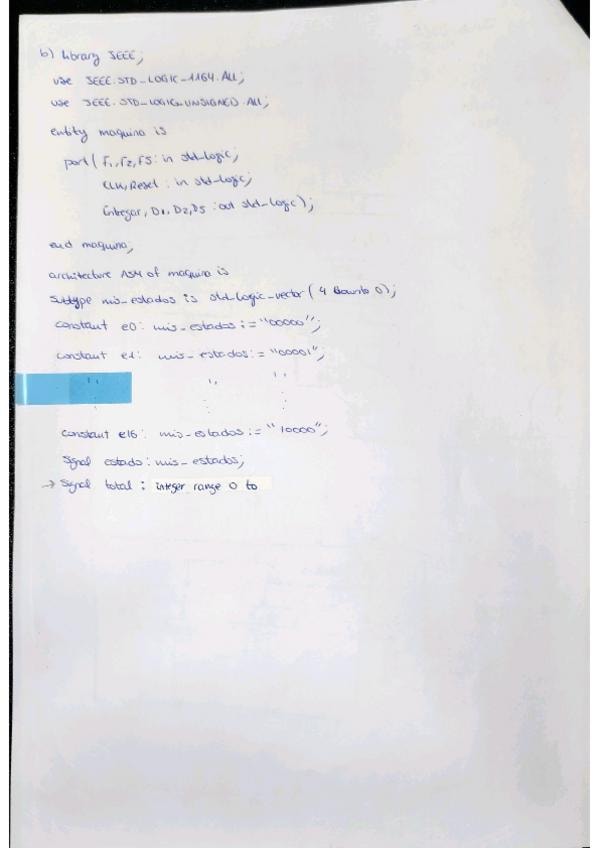 b) Library IEEE;
use IEEE.STD_LOGIC_1164.ALL;
use IEEE.STD_LOGIC_UNSIGNED.ALL;
entity maquina is
port( F1, F2, F5: in std_logic;
CLK, Reset : in std_logic;
Entregar, D1, D2, D5 : out std_logic);
end maquina;
architecture ASM of maquina is
Subtype mis_estados is std_logic_vector( 4 downto 0);
constant e0: mis_estados := "00000";
constant e1: mis_estados := "00001";
'' '' ''
: : :
constant e16: mis_estados := "10000";
Signal estado: mis_estados;
→ Signal total : integer range 0 to